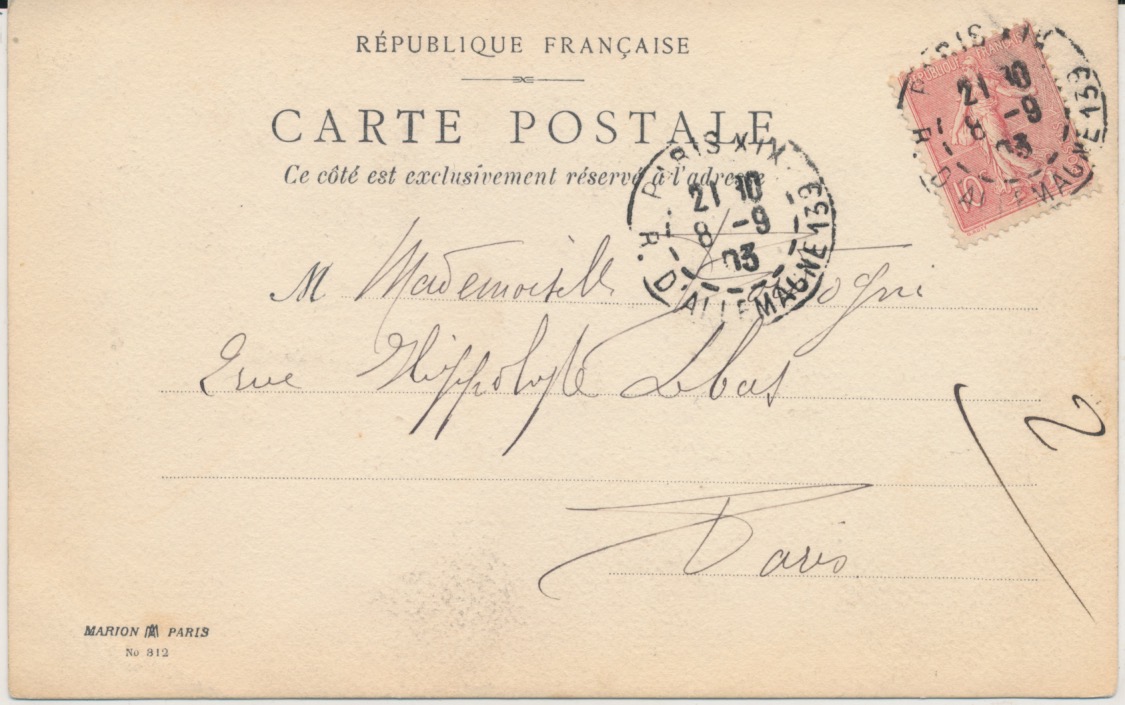 RÉPUBLIQUE FRANÇAISE
CARTE POSTALE
Ce côté est exclusivement réservé à l'adresse
RÉPUBLIQUE FRANÇAISE
10
PARIS XIX
21 10
8 -9
03
R. D'ALLEMAGNE 139
PARIS XIX
21 10
8 -9
03
R. D'ALLEMAGNE 139
M Mademoiselle
2 rue Hippolyte Lebas
2
Paris
MARION PARIS
No 812